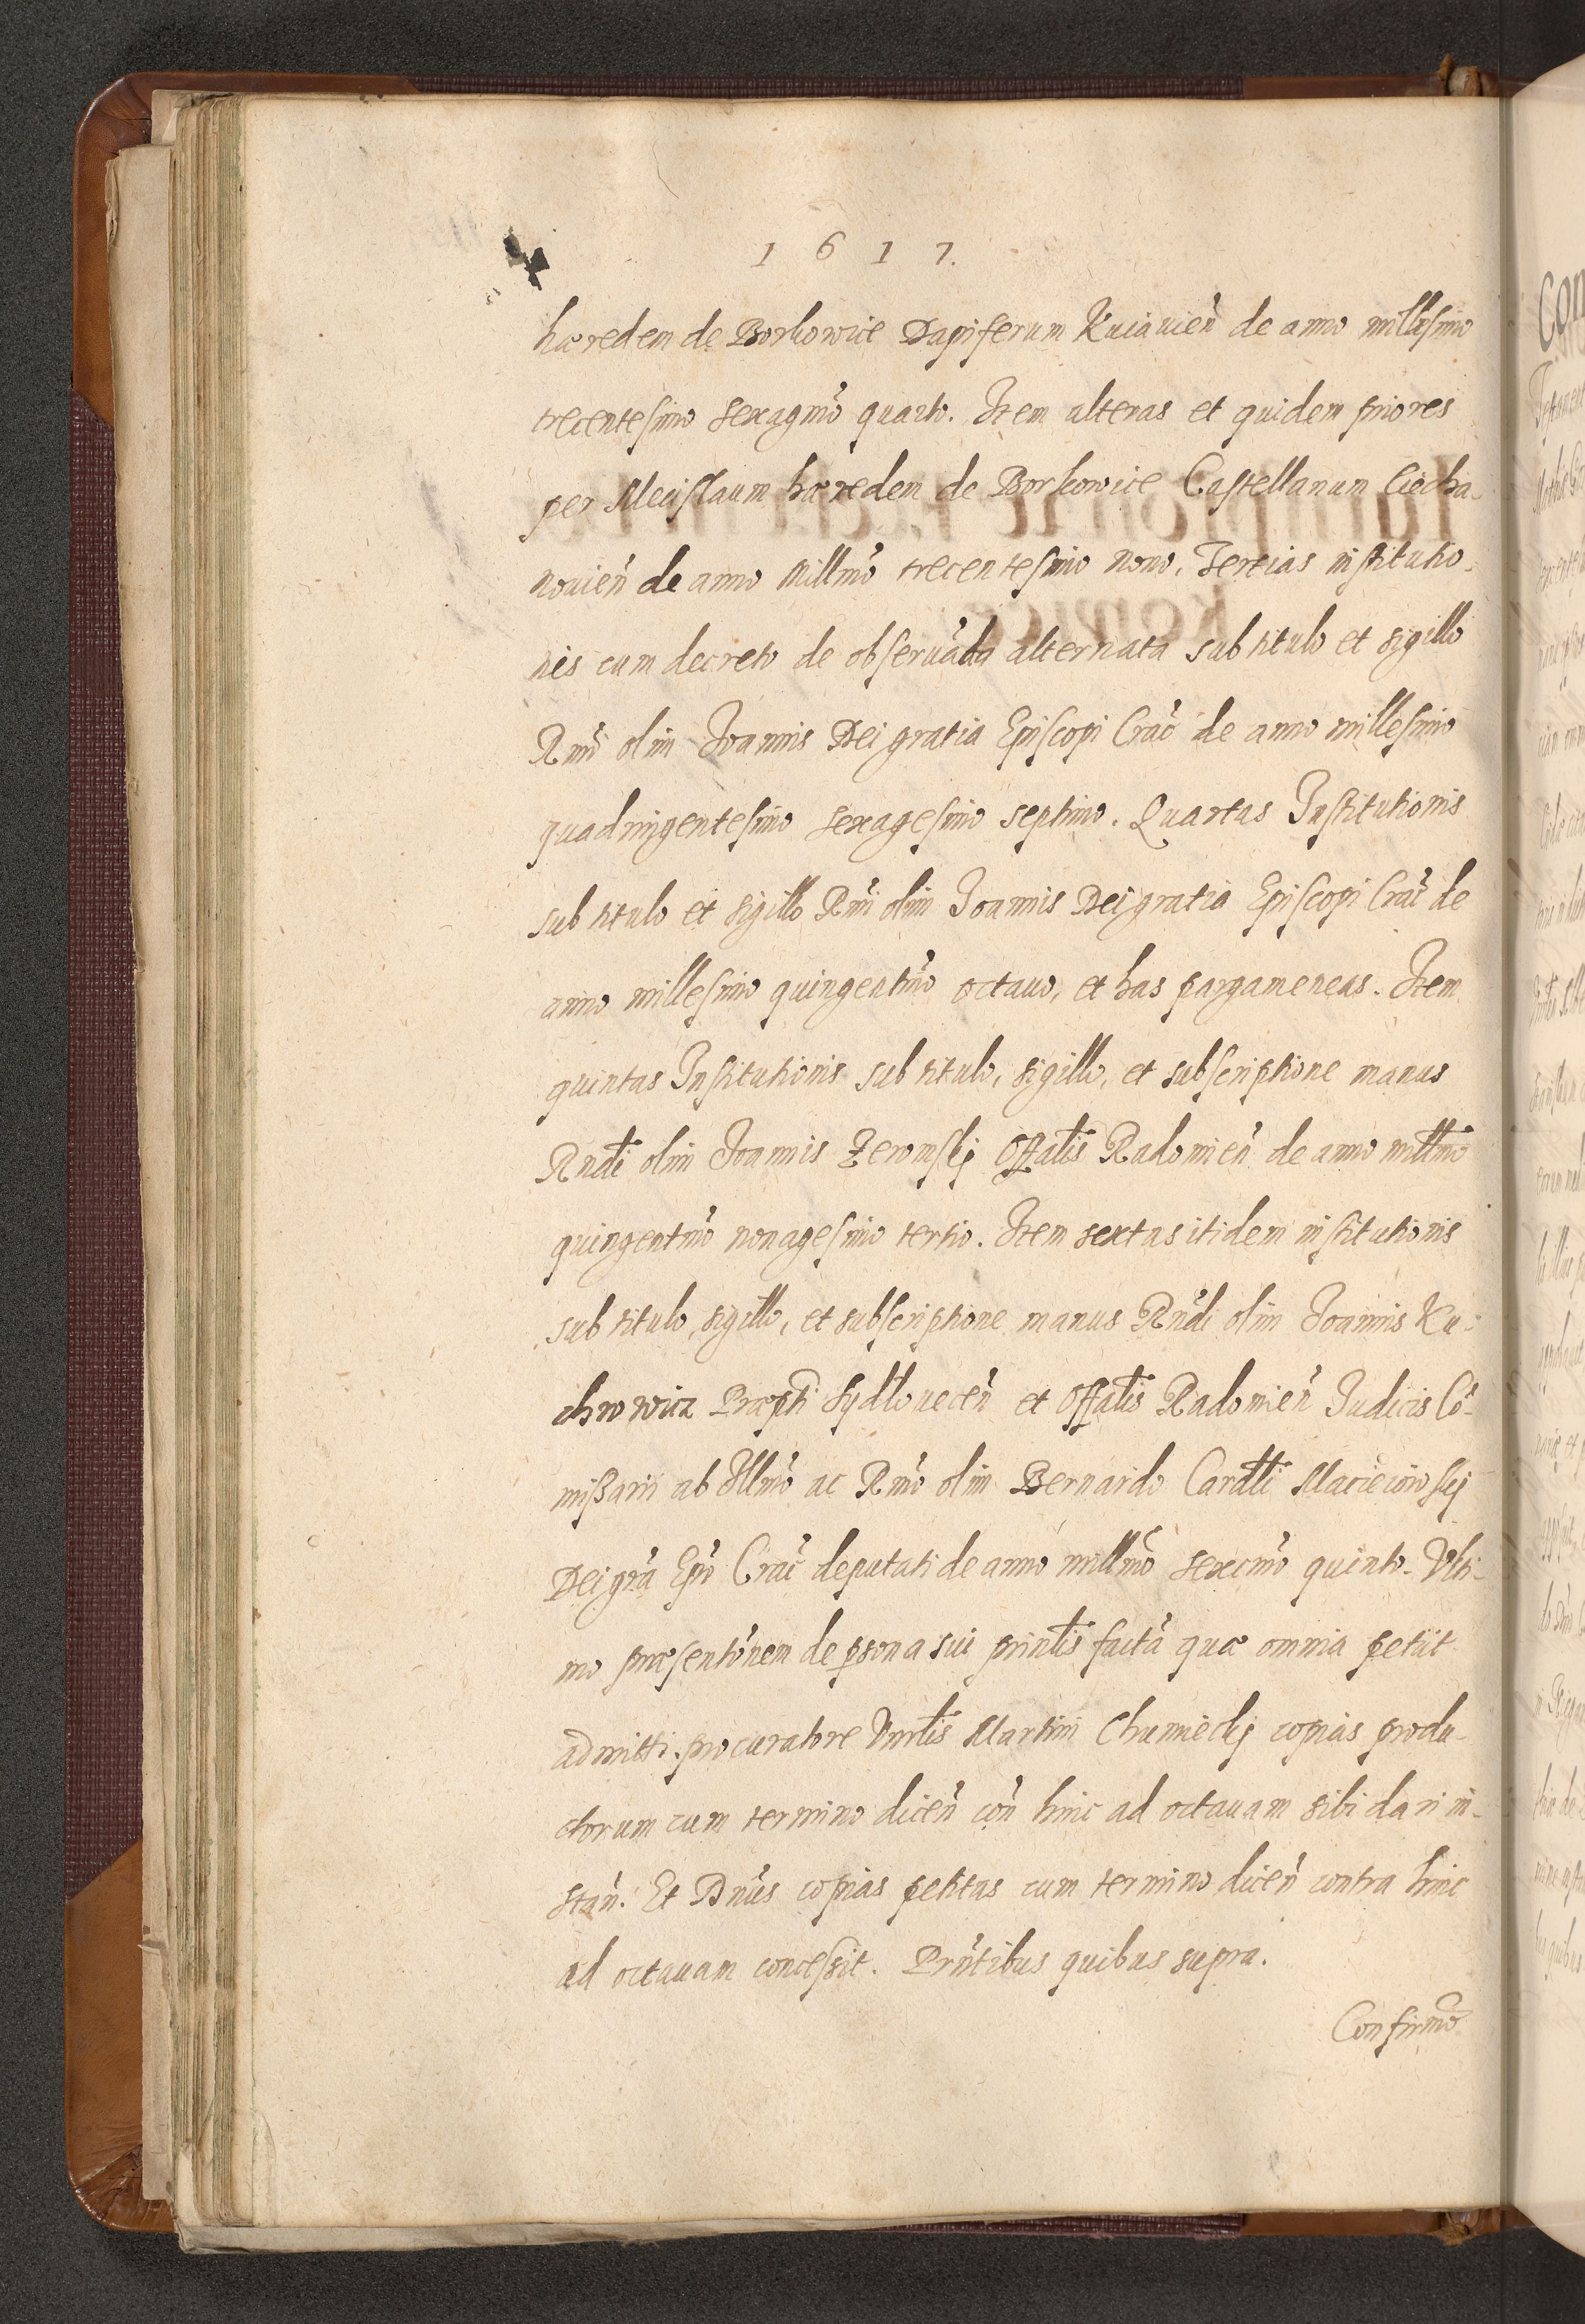 1617.
hæredem de Borkowice Dapiferum Kuiauieñ de anno millesimo
trecentesimo sexagmo quarto. Item alteras et quidem priores
per Mecislaum hæredem de Borkowice Castellanum Ciecha-
nouieñ de anno Millmo trecentesimo nono, Tertias institutio-
nis cum decreto de obseruãda alternata sub titulo et sigillo
Rmi olim Ioannis Dei gratia Episcopi Crac̃ de anno millesimo
quadringentesimo sexagesimo septimo. Quartas Institutionis
sub titulo et sigillo Rmi olim Ioannis Dei gratia Episcopi Crac̃ de
anno millesimo quingentmo octauo, et has pargameneas. Item
quintas Institutionis sub titulo, sigillo, et subscriptione manus
Rndi olim Ioannis Zeromskj Offalis Radomieñ de anno millmo
quingentmo nonagesimo tertio. Item sextas itidem institutionis
sub titulo, sigillo, et subscriptione manus Rñdi olim Ioannis Ku-
chrowicz Præpti Sydloueceñ et Offalis Radomieñ Iudicis Cõ-
mißarii ab Illmo ac Rmo olim Bernardo Cardli Macieiowskj
Dei gr̃a Epõ Crac̃ deputati de anno millmo sexcmo quinto. Vlti-
mo præsentõnem de psona sui prinlis factã quæ omnia petiit
admitti. procuratore Vnrlis Martini Chumieckj copias produ-
ctorum cum termino diceñ coñ hinc ad octauam sibi dari in-
stañ. Et Dñus copias petitas cum termino diceñ contra hinc
ad octauam conceßit. Prñtibus quibus supra.
Confirmõ